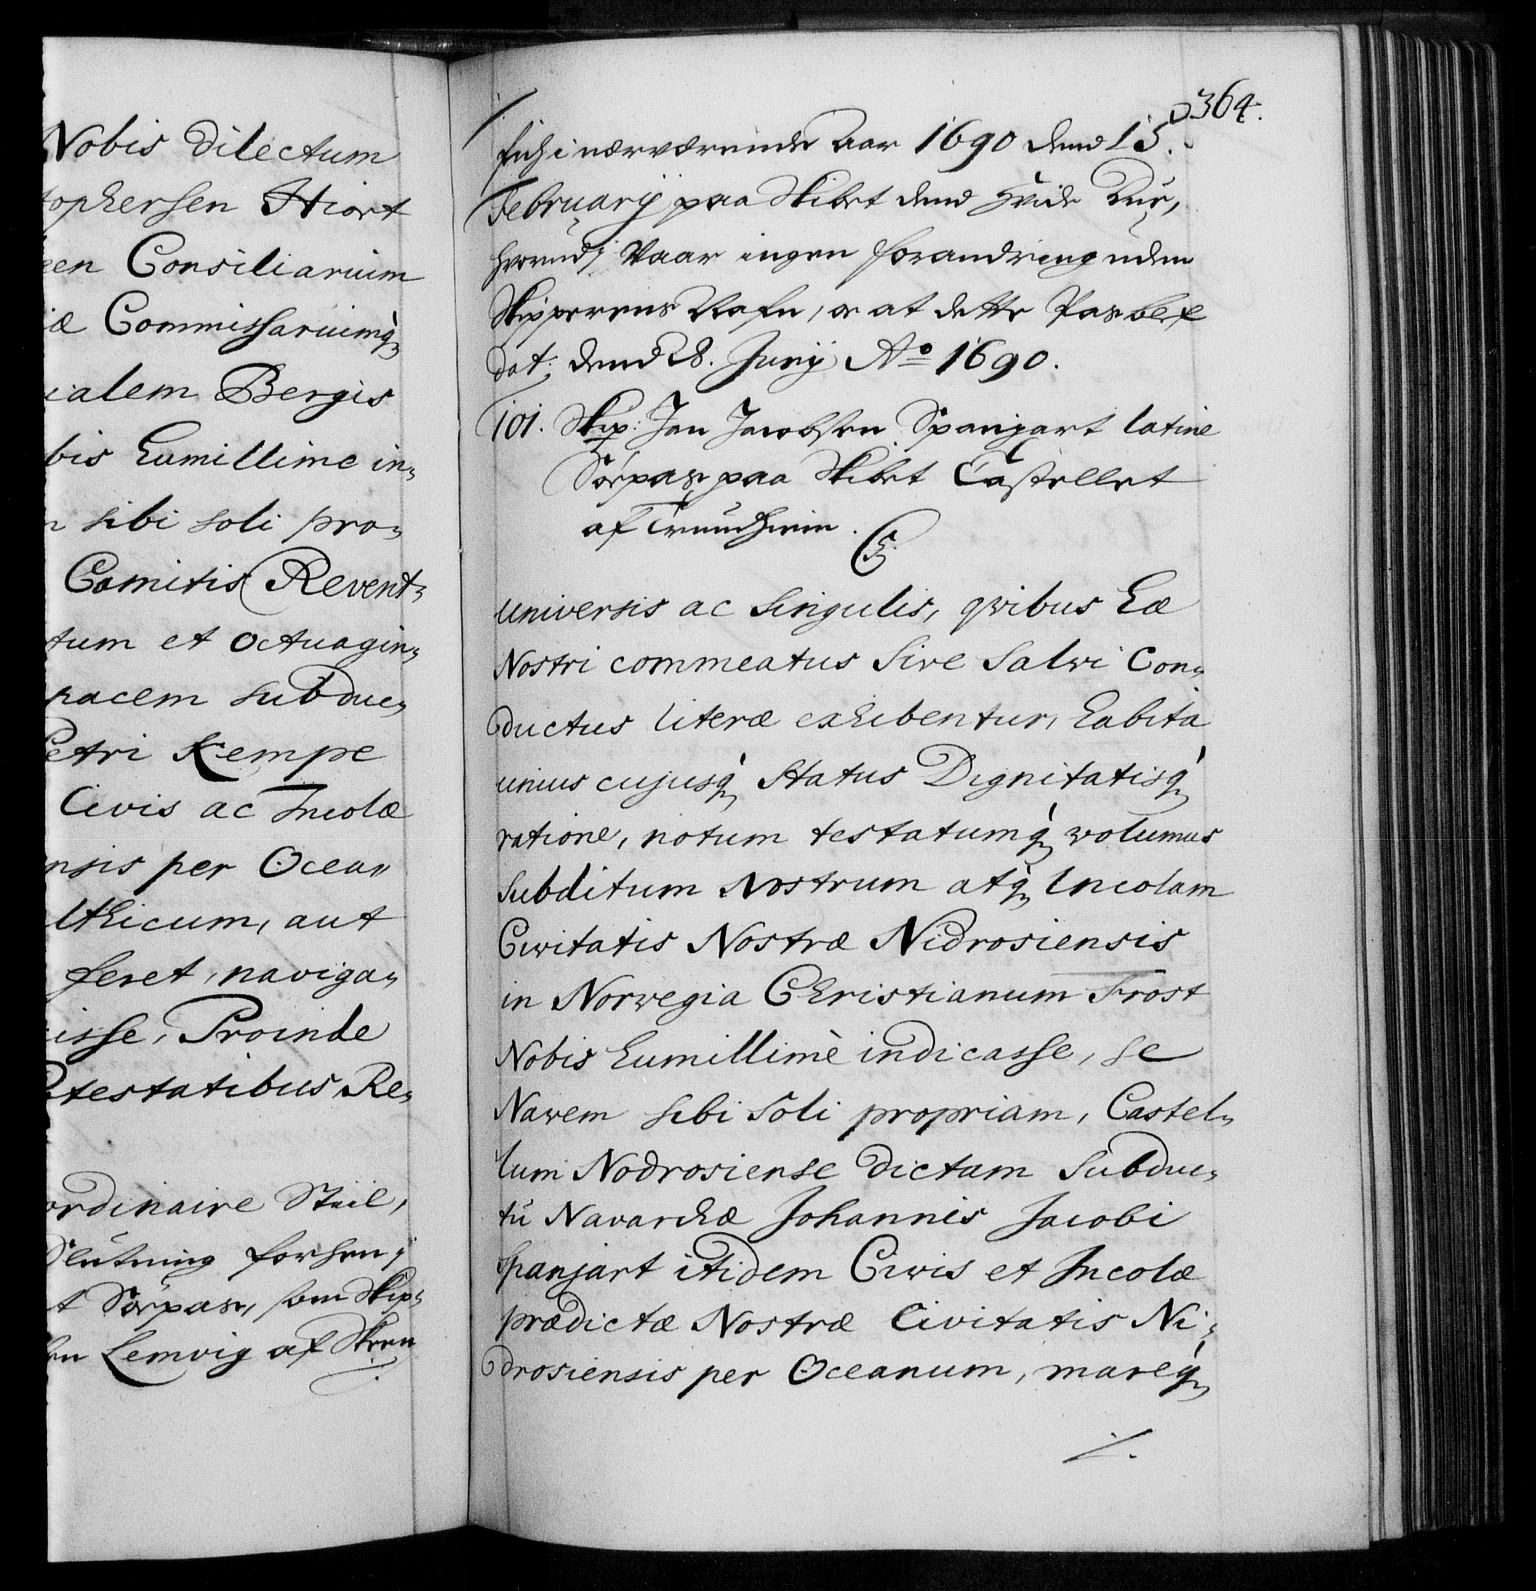 Nobis dilectum
tophersen Hiort
een Consiliarium
iæ Commissariumq̢
ialem Bergis
bis humillime in„
n sibi soli pro„
Comitis Revent„
tum et octuagin„
pacem subduc„
Petri Kempe
Civis ac Incolæ
nsis per Ocea„
lthicum, aut
feret, naviga„
isse, Proinde
otestatibus Re„
ordinaire Stiil,
Slutning forsen;
t Søepas, som Skip„
en Lemvig af Skeen
364.
fich i nærværende Aar 1690 dend 15.
February paa Skibet dend Hvide Due,
hvorudj Vaar ingen forandring uden
Skipperens Nafn, og at dette Pas blef
dat: dend 28. Junij Aº 1690.
101. Skip: Jan Jacobsen Spanjart latine
Søepas paa Skibet Castellet
af Trundhiem.
C5.
Universis ac Singulis, qvibus hæ
Nostri commeatus sive Salvi Con„
ductus literæ exhibentur, habita
unius cujusq̢ Status Dignitatisq̢
ratione, notum testatumq̢ volumus
Subditum Nostrum atq̢ Incolam
Civitatis Nostræ Nidrosiensis
in Norvegia Christianum Frost
Nobis humillimè indicasse, se
Navem sibi soli propriam, Castel„
lum Nodrosiense dictam subduc„
tu Navarchæ Johannis Jacobi
Spanjart itidem Civis et Incolæ
prædictæ Nostræ Civitatis Ni„
drosiensis per Oceanum, mareq̢
./.